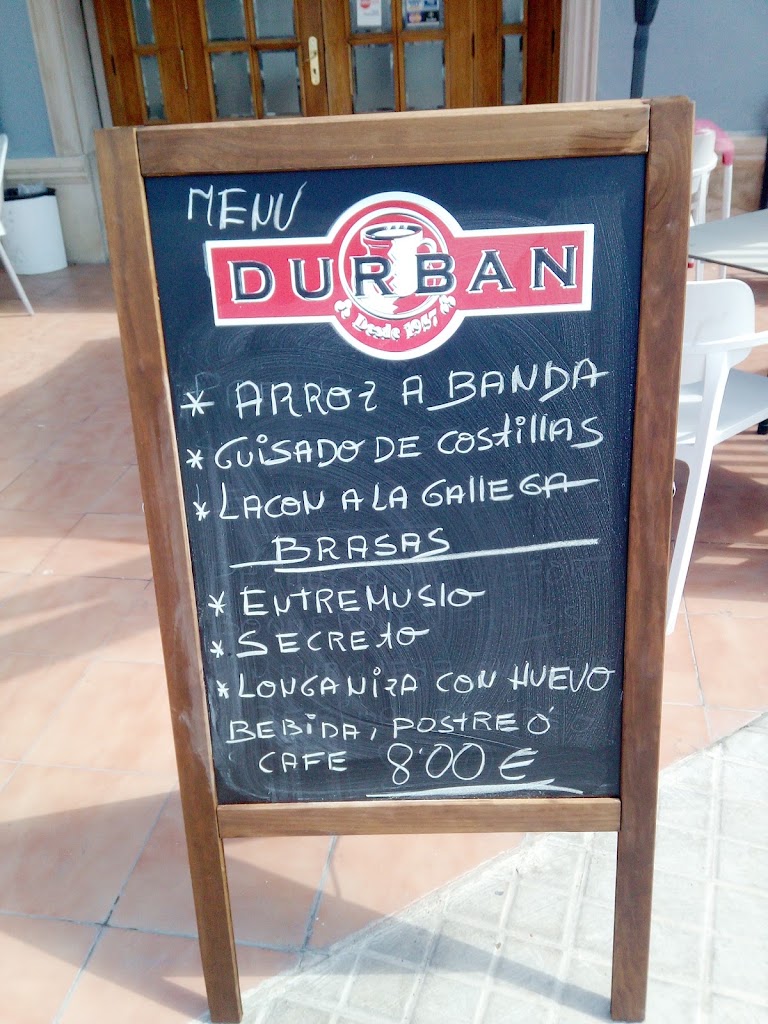 MENU
DURBAN
Desde 1957
* ARROZ A BANDA
* GUISADO DE COSTILLAS
* LACON A LA GALLEGA
BRASAS
* ENTREMUSLO
* SECRETO
* LONGANIZA CON HUEVO
BEBIDA, POSTRE Ó
CAFE 8'00 €